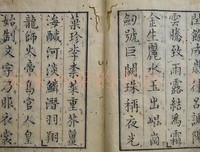 閏餘成歲律呂調陽
雲騰致雨露結爲霜
金生麗水玉出崑岡
劒號巨闕珠稱夜光
菓珍李柰菜重芥薑
海鹹河淡鱗潛羽翔
龍師火帝鳥官人皇
始制文字乃服衣裳